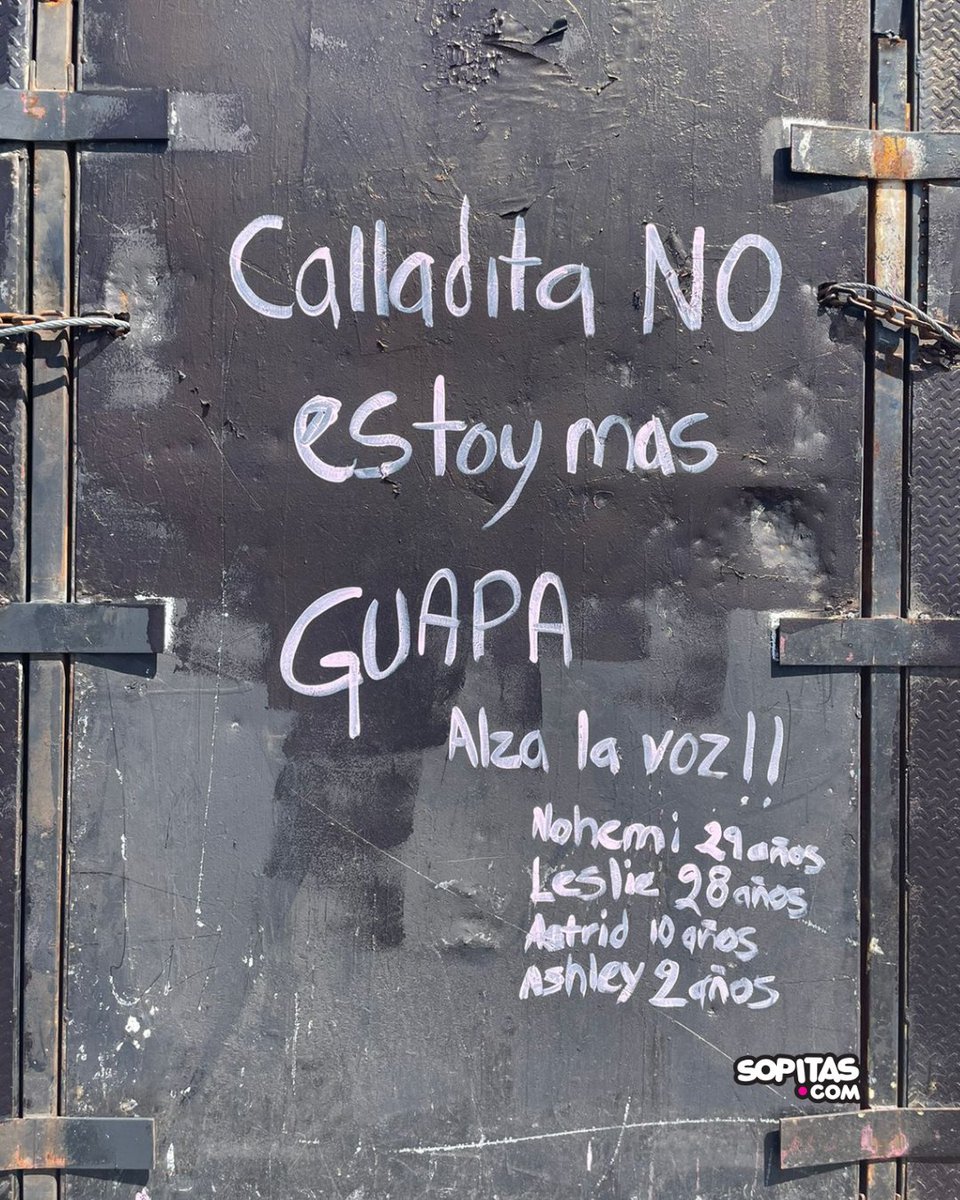 Calladita NO
estoy mas
GUAPA
Alza la voz!!
Nohemi 29 años
Leslie 28 años
Astrid 10 años
Ashley 2 años
SOPITAS
.COM